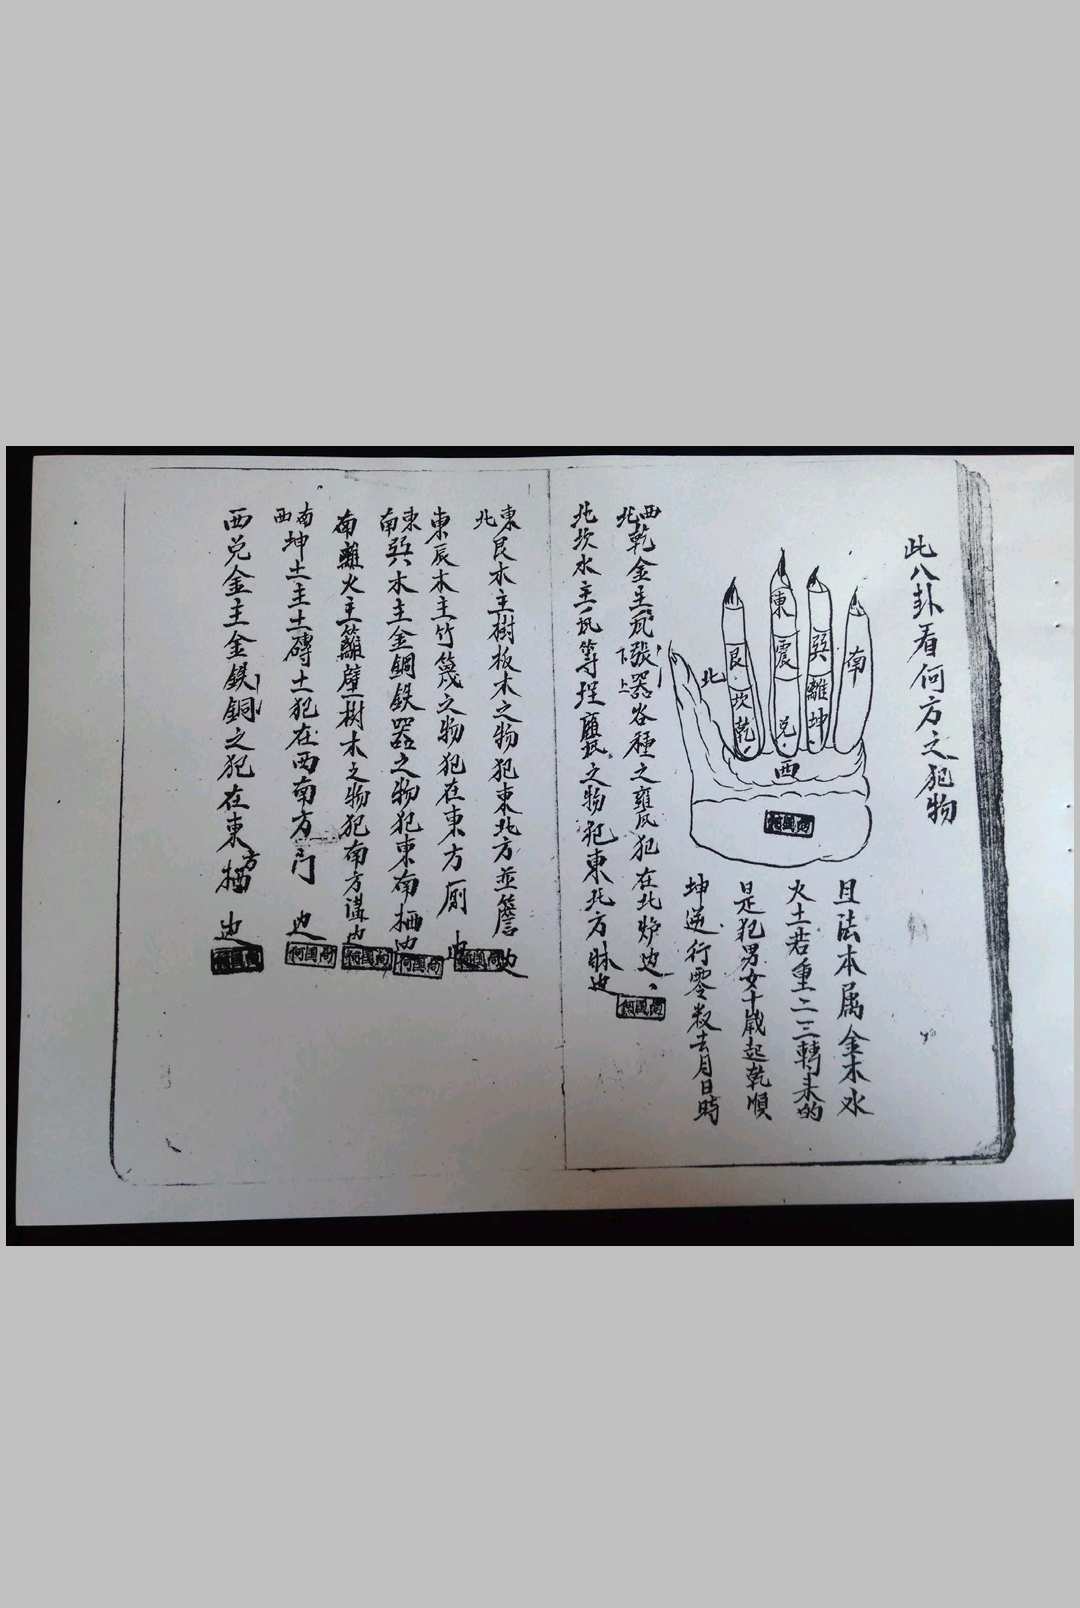 此八卦看何方之犯物
東
震
兌
西
巽
離
坤
南
艮
坎
乾
北
且法本属金木水
火土若重二三轉来的
是犯男女十歲起乾順
坤逆行零数去月日時
西北乾金主瓦張器各種之甕瓦犯在北炉也
北坎水主瓦等埕甕瓦之物犯東北方牀也
東北艮木主樹板木之物犯東北方並簷也
東辰木主竹篾之物犯在東方厠也
東南巽木主金銅鉄器之物犯東南栖也
南離火主籬壁樹木之物犯南方溝也
西南坤土主土磚土犯在西南方門也
西兑金主金鉄銅之犯在東方栖也